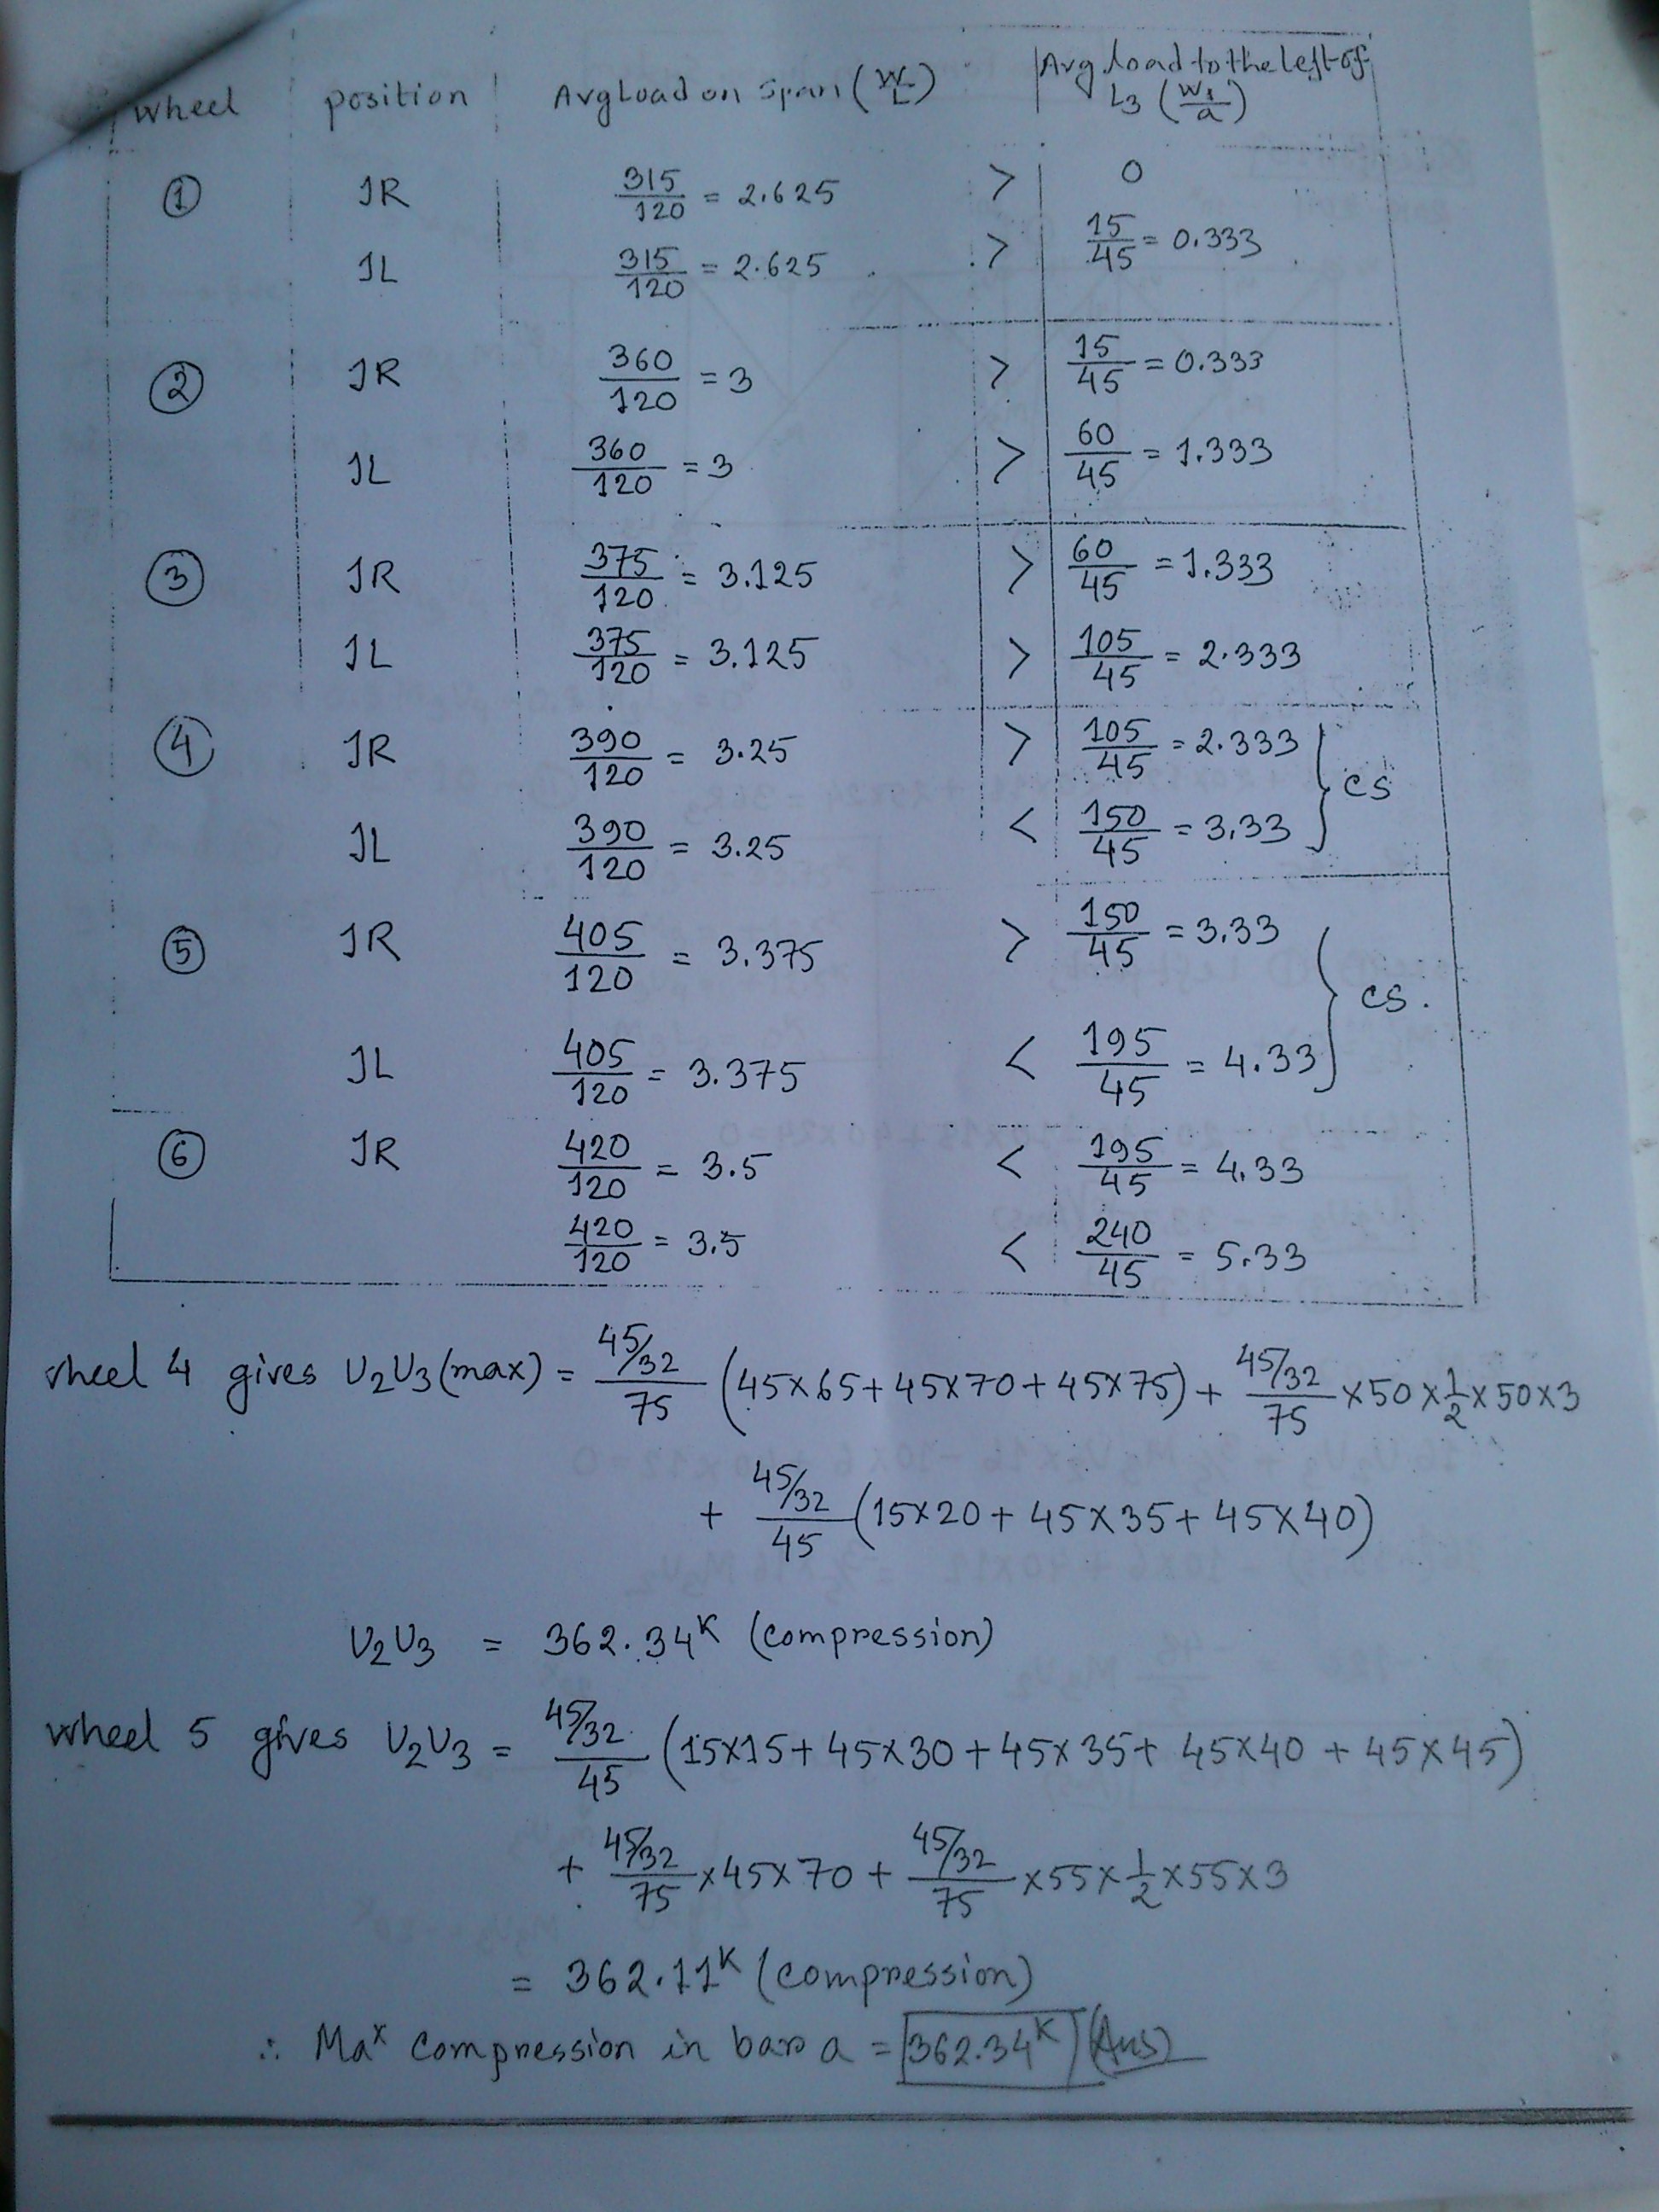 Wheel position Avg Load on Span (W/L) Avg load to the left of L3 (W1/a)
① JR 315/120 = 2.625 > 0
JL 315/120 = 2.625 > 15/45 = 0.333
② JR 360/120 = 3 > 15/45 = 0.333
JL 360/120 = 3 > 60/45 = 1.333
③ JR 375/120 = 3.125 > 60/45 = 1.333
JL 375/120 = 3.125 > 105/45 = 2.333
④ JR 390/120 = 3.25 > 105/45 = 2.333
JL 390/120 = 3.25 < 150/45 = 3.33 } CS
⑤ JR 405/120 = 3.375 > 150/45 = 3.33
JL 405/120 = 3.375 < 195/45 = 4.33 } CS.
⑥ JR 420/120 = 3.5 < 195/45 = 4.33
420/120 = 3.5 < 240/45 = 5.33
wheel 4 gives U2U3(max) = (45/32)/75 (45×65+45×70+45×75) + (45/32)/75 ×50×1/2×50×3
+ (45/32)/45 (15×20+45×35+45×40)
U2U3 = 362.34K (compression)
wheel 5 gives U2U3 = (45/32)/45 (15×15+45×30+45×35+45×40+45×45)
+ (45/32)/75 ×45×70+ (45/32)/75 ×55×1/2×55×3
= 362.11K (compression)
∴ Max compression in bar a = 362.34K (Ans)